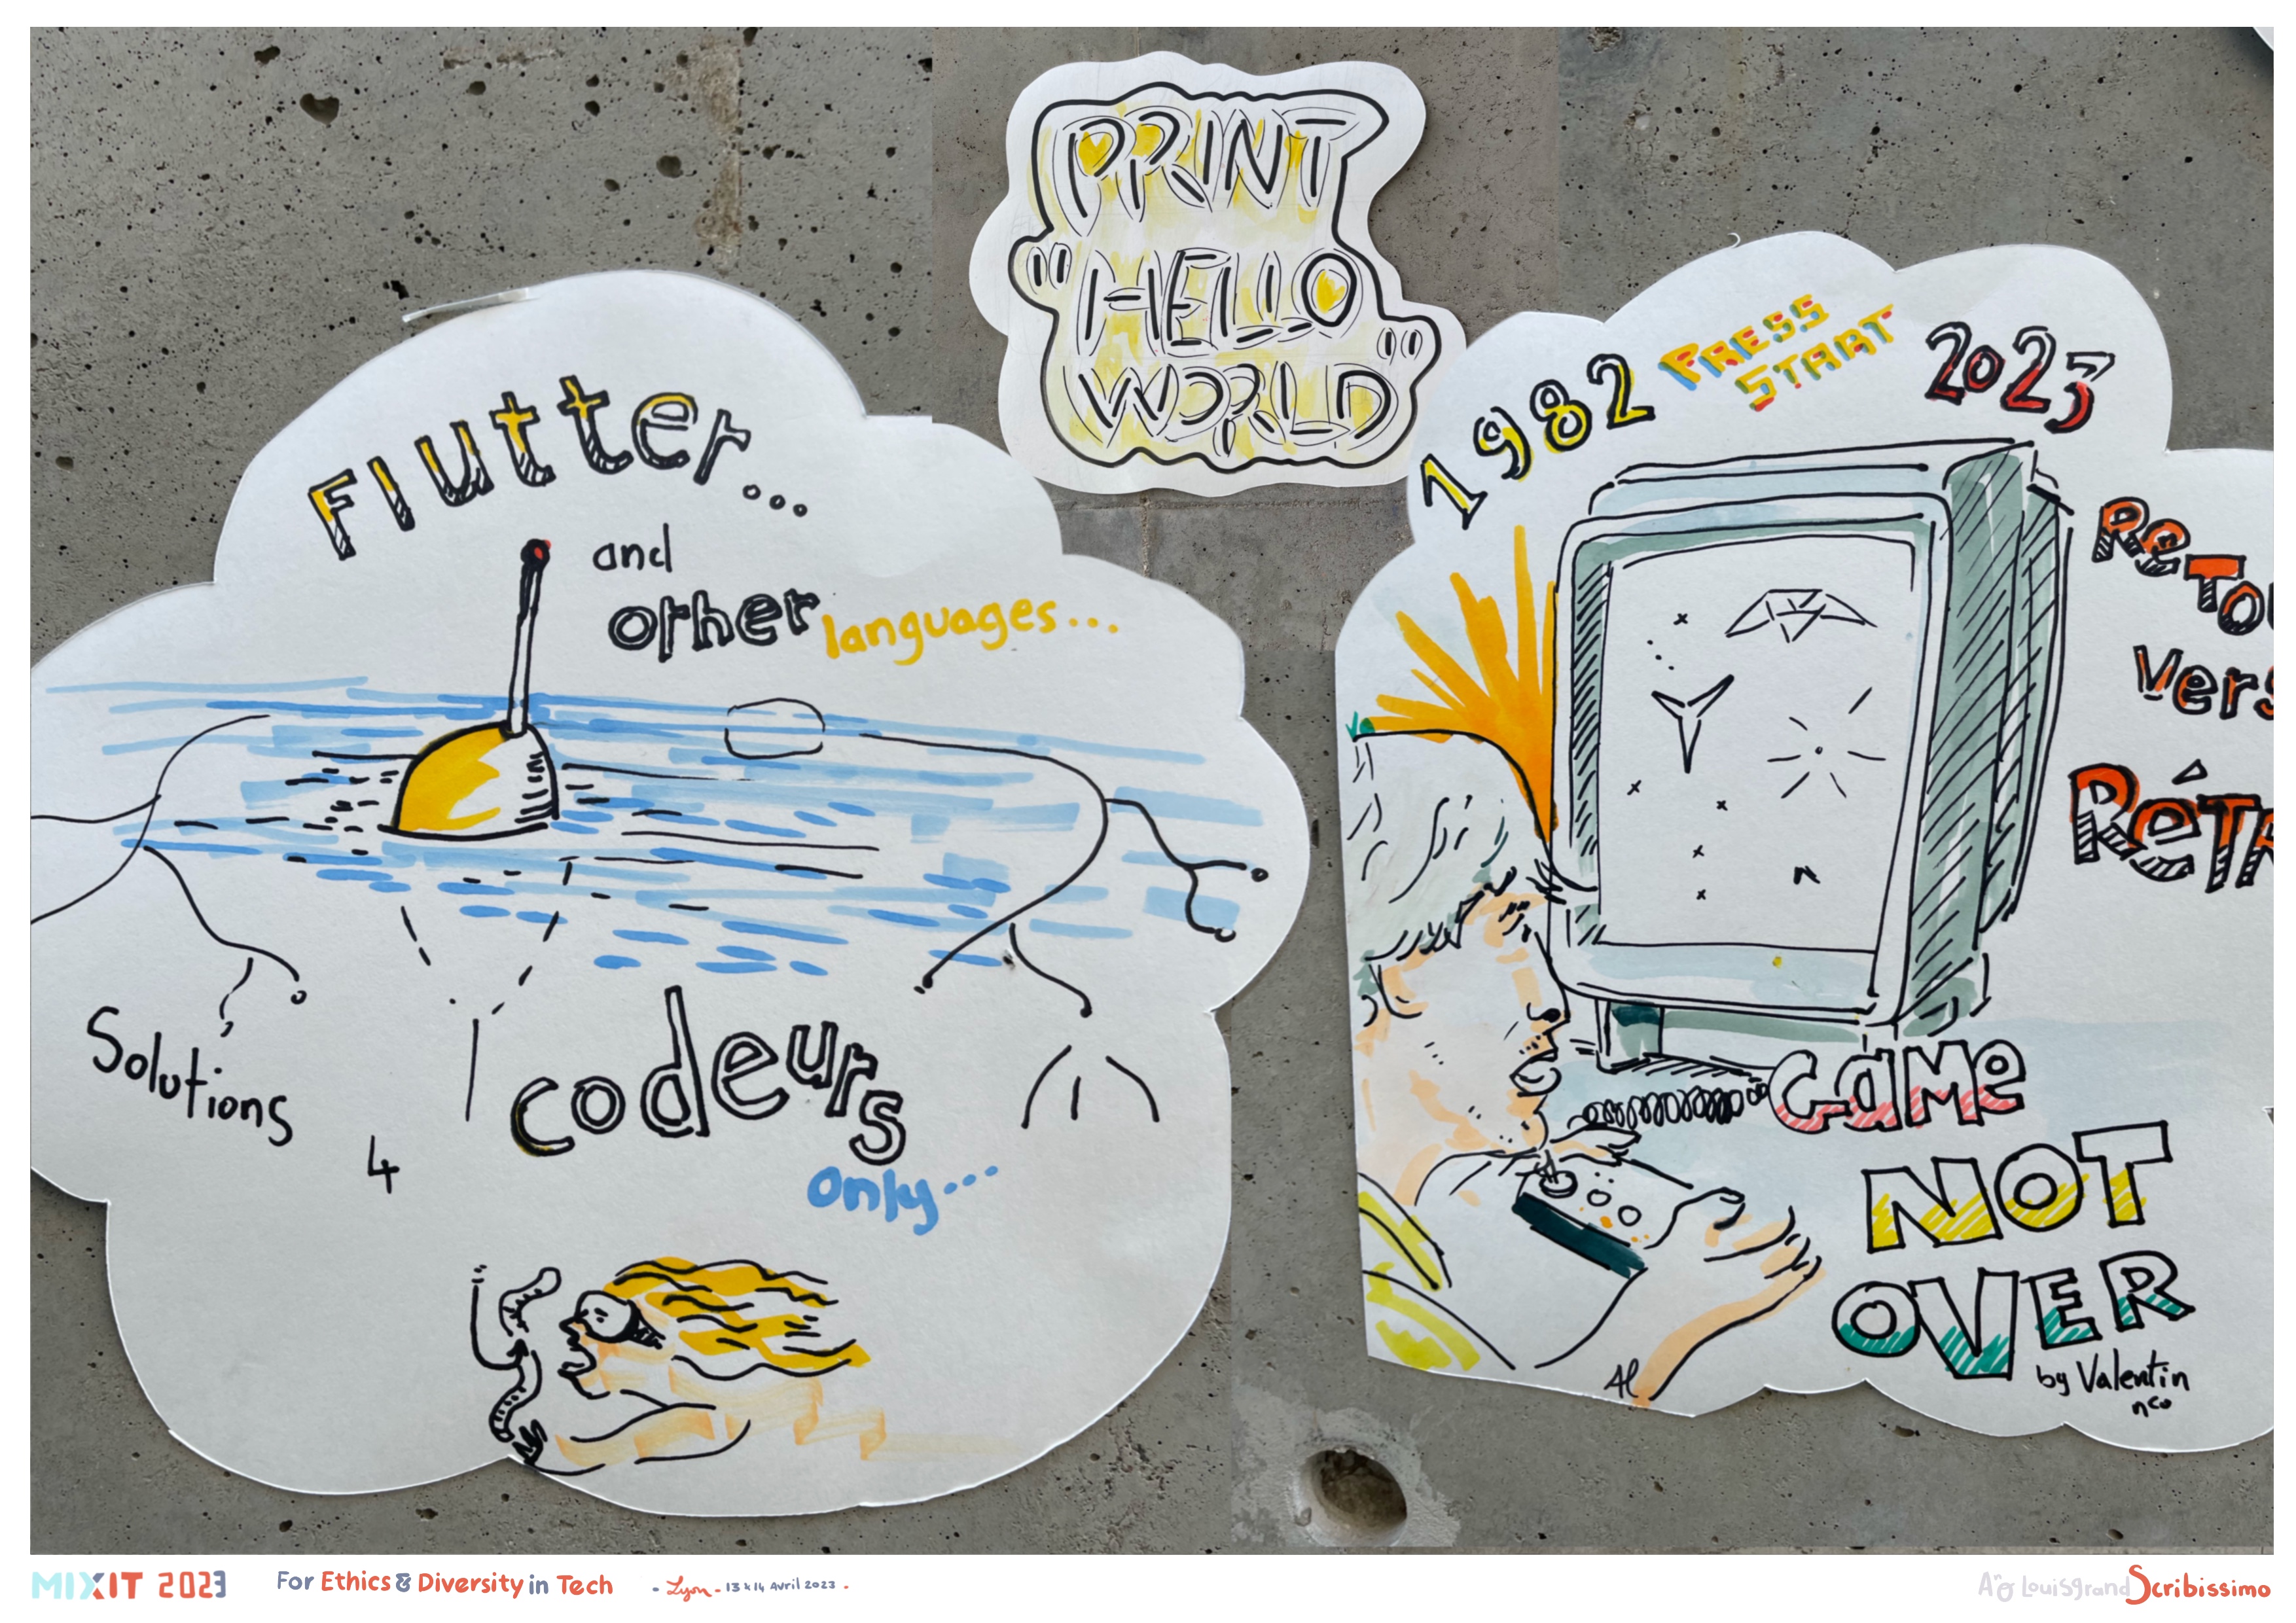 PRINT
"HELLO
WORLD"
Flutter...
and
other languages...
Solutions
4
codeurs
only...
1982 PRESS START 2023
ReTou
Vers
RÉTR
GAME
NOT
OVER
by Valentin
nco
AL
MIXIT 2023 For Ethics & Diversity in Tech - Lyon - 13 & 14 Avril 2023 -
LouisGrand Scribissimo